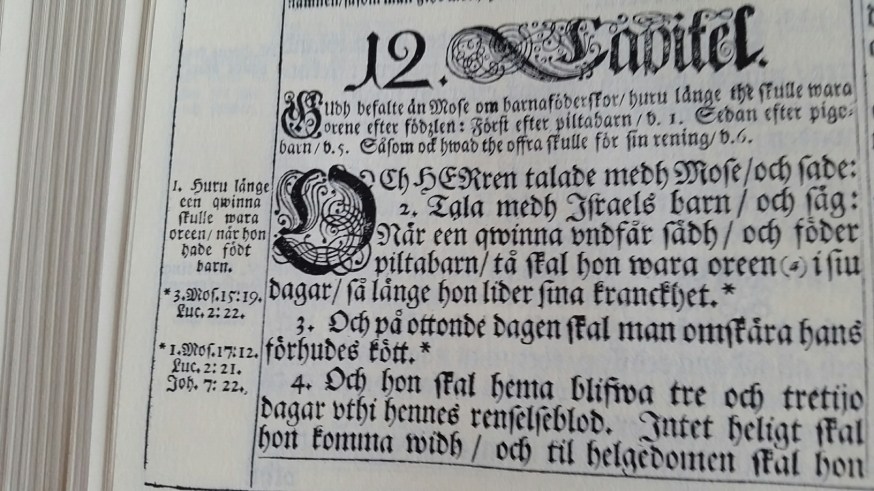 12. Capitel.
Gudh befalte än Mose om barnaföderskor/ huru länge the skulle wara
orene efter födzlen: Först efter piltabarn/ v. 1. Sedan efter pige-
barn/ v. 5. Såsom ock hwad the offra skulle för sin rening/ v. 6.
1. Huru länge
een qwinna
skulle wara
oreen/ när hon
hade födt
barn.
OCh HERren talade medh Mose/ och sade:
2. Tala medh Israels barn/ och säg:
När een qwinna vndfår sädh/ och föder
piltabarn/ tå skal hon wara oreen (a) i siu
dagar/ så länge hon lider sina kranckhet.*
* 3. Mos. 15: 19.
Luc. 2: 22.
3. Och på ottonde dagen skal man omskära hans
förhudes kött.*
* 1. Mos. 17: 12.
Luc. 2: 21.
Joh. 7: 22.
4. Och hon skal hema blifwa tre och tretijo
dagar vthi hennes renselseblod. Intet heligt skal
hon komma widh / och til helgedomen skal hon